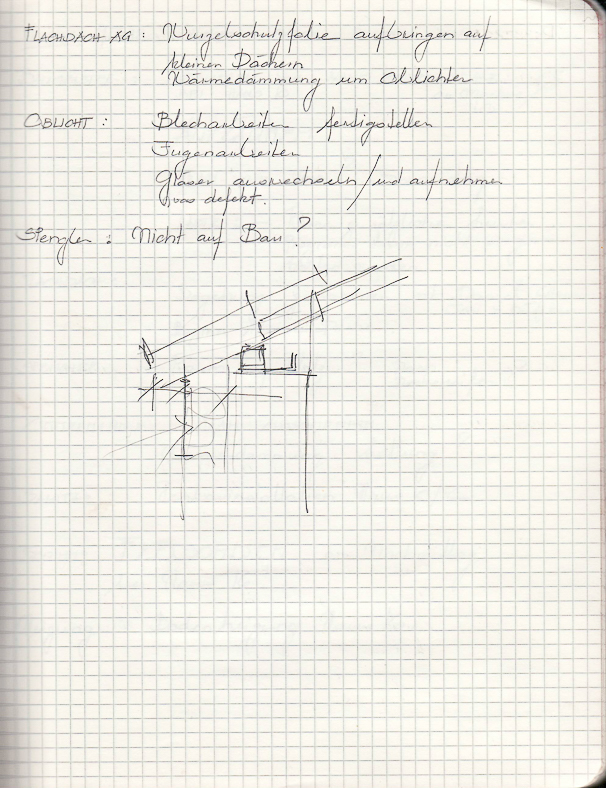 FLACHDACH AG: Wurzelschutzfolie aufbringen auf
kleinen Dächern
Wärmedämmung um Oblichter
OBLICHT: Blecharbeiten fertigstellen
Fugenarbeiten
Gläser auswechseln/und aufnehmen
was defekt.
Spengler: Nicht auf Bau?